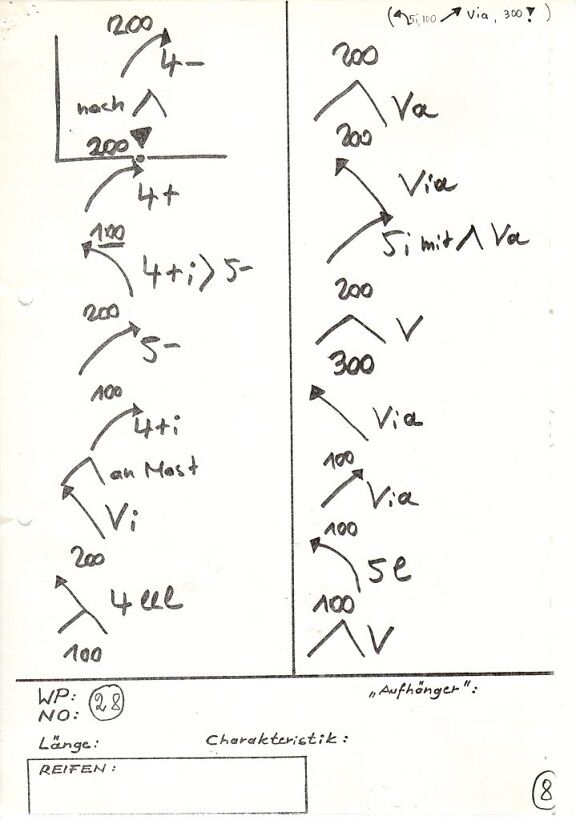 200
4-
nach
200
4+
100
4+i > 5-
200
5-
100
4+i
an Mast
Vi
200
4 lll
100
( 5i, 100 Via, 300 ! )
200
Va
200
Via
5i mit Λ Va
200
V
300
Via
100
Via
100
5 l
100
V
WP: 28
NO:
„Aufhänger":
Länge:
Charakteristik:
REIFEN:
8